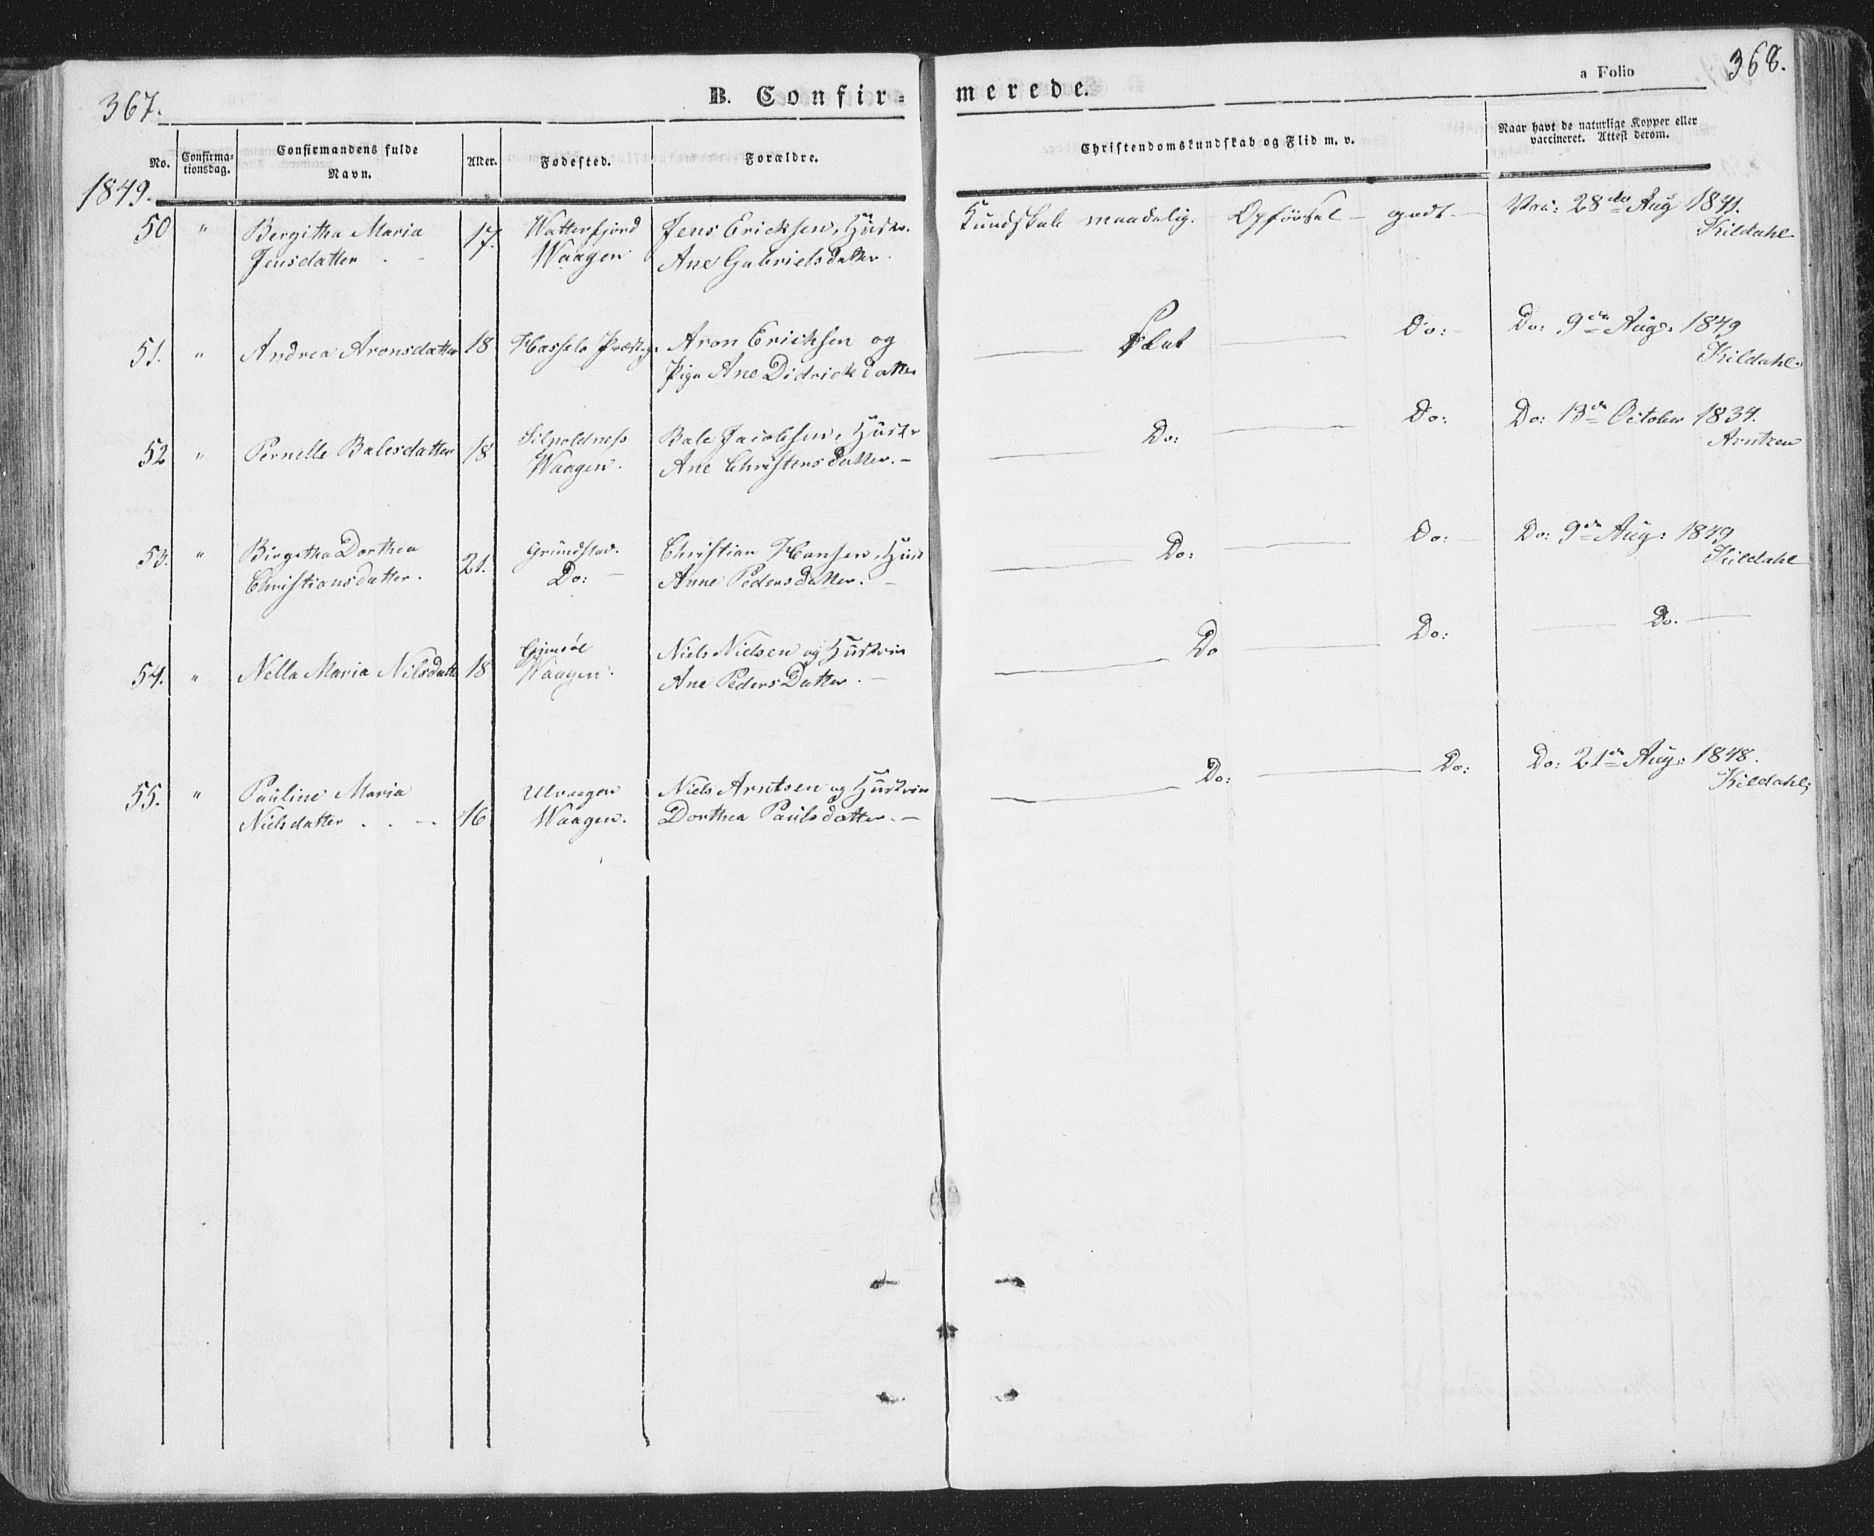 367.
B. Confir=
merede.
a Folio
368.
No.
Confirma-
tionsdag.
Confirmandens fulde
Navn.
Alder.
Fødested.
Forældre.
Christendomskundskab og Flid m. v.
Naar havt de naturlige Kopper eller
vaccineret. Attest derom.
1849.
50 " Bergitha Maria
Jensdatter . - 17. Watterfjord
Waagen Jens Ericksen, Hustr.
Ane Gabrielsdatter. Kundskab maadelig. Opførsel - godt - Vac: 28de Aug 1841.
Kildahl
51. " Andrea Aronsdatter 18 Hassels Præstegj. Aron Ericksen og
Pige Ane Didricksdatter Slet Do: - Do: 9de Aug: 1849
Kildahl.
52 " Pernelle Balesdatter 18 Silpoldness
Waagen. Bale Jacobsen, Hustr
Ane Christensdatter. - Do: Do: Do: 13de October 1834.
Arntzen
53. " Birgitha Dorthea
Christiansdatter. 21. Grundstad.
Do: - Christian Hansen, Hust
Anne Pedersdatter. - Do: Do: - Do: 9de Aug: 1849
Kildahl
54. " Nella Maria Nilsdatt 18 Gimsøe
Waagen. Niels Nielsen og Hustrue
Ane PedersDatter. - Do Do: Do.
55. " Pauline Maria
Nielsdatter . . - 16 Ulvaagen
Waagen. Niels Arntsen og Hustrue
Dorthea Paulsdatter. - Do: Do: Do: 21de Aug: 1848.
Kildahl;